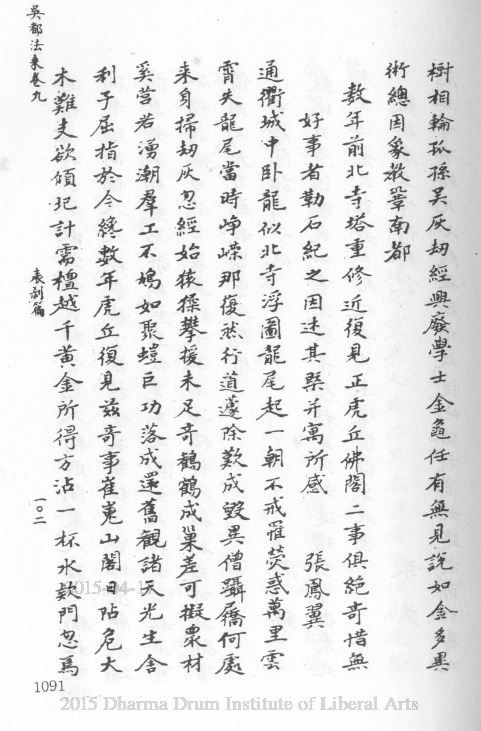 樹相輪孤孫吳灰劫經興廢學士金龜任有無見說如金多異
術總因象教鞏南都
數年前北寺塔重修近復見正虎丘佛閣二事俱絕奇惜無
好事者勒石紀之因述其槩并寓所感　張鳳翼
通衢城中卧龍似北寺浮圖龍尾起一朝不戒罹熒惑萬里雲
霄失龍尾當時崢嶸那復然行道蘧除歎成毀異僧躡屩何處
来身掃劫灰忽經始猿猱攀援未足奇鶴鶴成巢差可擬衆材
奚啻若湧潮羣工不鳩如聚螘巨功落成還舊觀諸天光生舍
利子屈指於今纔數年虎丘復見茲奇事崔嵬山閣日阽危大
木難支欲傾圮計需檀越千黃金所得方沾一杯水欵門忽焉
吳都法乘卷九
表剎篇
一〇二
1091
2015-04-1
2015 Dharma Drum Institute of Liberal Arts